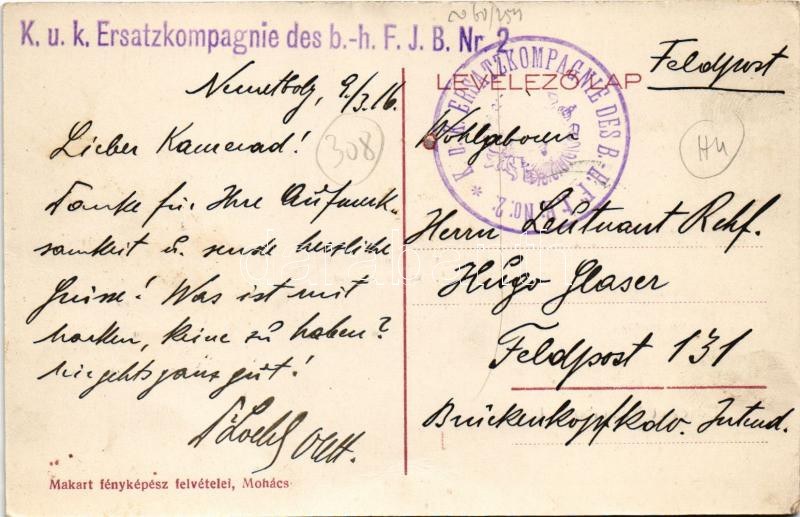 K. u. k. Ersatzkompagnie des b.-h. F. J. B. Nr. 2
Nemetboly, 9/3. 16.
Lieber Kamerad!
Danke für Ihre Aufmerk-
samkeit u. sende herzliche
Grüsse! Was ist mit
keine zu haben?
hier gehts ganz gut!
Oblt.
Makart fényképész felvételei, Mohács
308
LEVELEZŐ-LAP
K. u. K. ERSATZKOMPAGNIE DES B.-H. F. J. B. No. 2.
Feldpost
Hu
Wohlgeboren
Herrn Leutnant Rchf.
Hugo Glaser
Feldpost 131
Brückenkopfkdo. Intend.